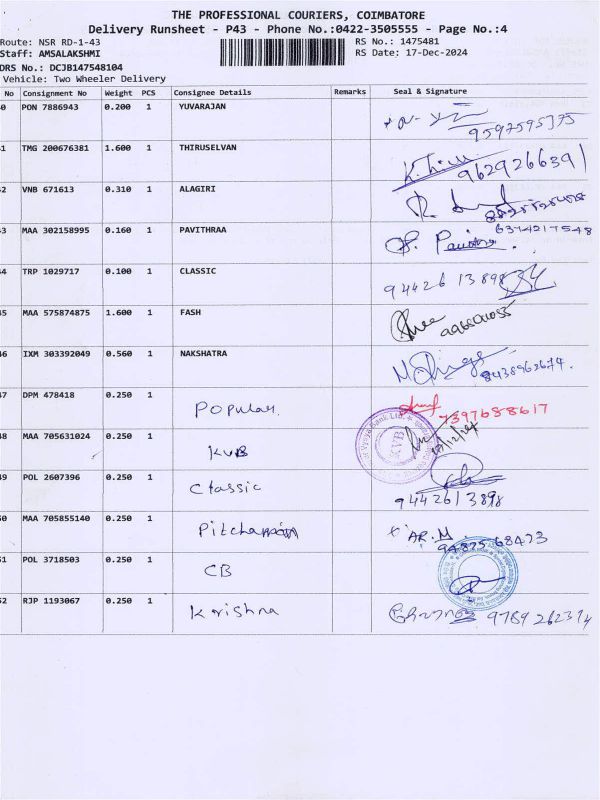 THE PROFESSIONAL COURIERS, COIMBATORE
Delivery Runsheet - P43 - Phone No.:0422-3505555 - Page No.:4
Route: NSR RD-1-43 RS No.: 1475481
Staff: AMSALAKSHMI RS Date: 17-Dec-2024
DRS No.: DCJB147548104
Vehicle: Two Wheeler Delivery
No Consignment No Weight PCS Consignee Details Remarks Seal & Signature
0 PON 7886943 0.200 1 YUVARAJAN
9597595375
1 TMG 200676381 1.600 1 THIRUSELVAN
9629266391
2 VNB 671613 0.310 1 ALAGIRI
3 MAA 302158995 0.160 1 PAVITHRAA 6374217548
4 TRP 1029717 0.100 1 CLASSIC
9442613898
5 MAA 575874875 1.600 1 FASH
6 IXM 303392049 0.560 1 NAKSHATRA
8438962674.
7 DPM 478418 0.250 1
Popular. 7397688617
8 MAA 705631024 0.250 1
KVB KVB
9 POL 2607396 0.250 1
Classic 9442613898
0 MAA 705855140 0.250 1
AR.M.
94875 68473
1 POL 3718503 0.250 1
CB
2 RJP 1193067 0.250 1
Krishna 9789262374